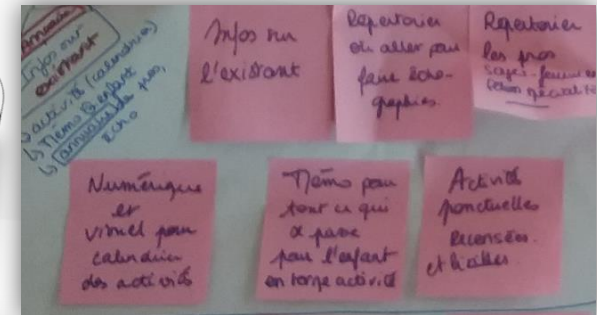 Annuaire
Infos sur
existant
↳ activité (calendrier)
↳ Mémo Enfant
↳ annuaire des pros,
écho
Infos sur
l'existant
Répertorier
où aller pour
faire écho-
graphies.
Répertorier
les pros
sages-femmes
Numérique
et
visuel pour
calendrier
des activités
Mémo pour
tout ce qui
se passe
pour l'enfant
en terme activité
Activités
ponctuelles
Recensées.
et